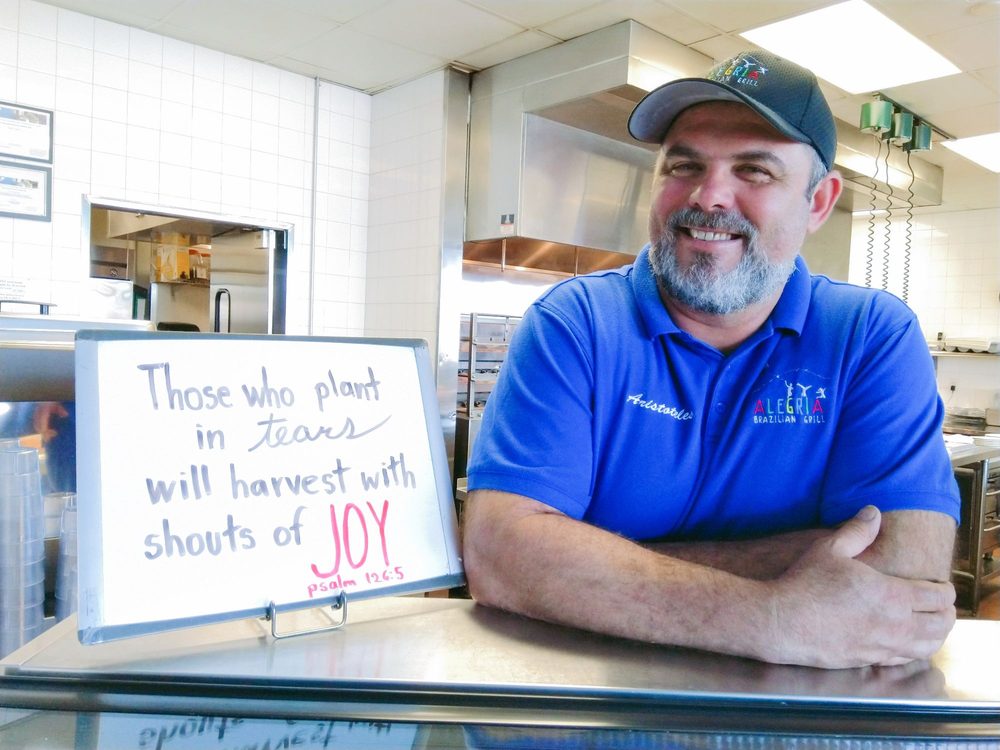 Those who plant
in tears
will harvest with
shouts of JOY
psalm 126:5
ALEGRIA
BRAZILIAN GRILL
Aristoteles
ALEGRIA
BRAZILIAN GRILL